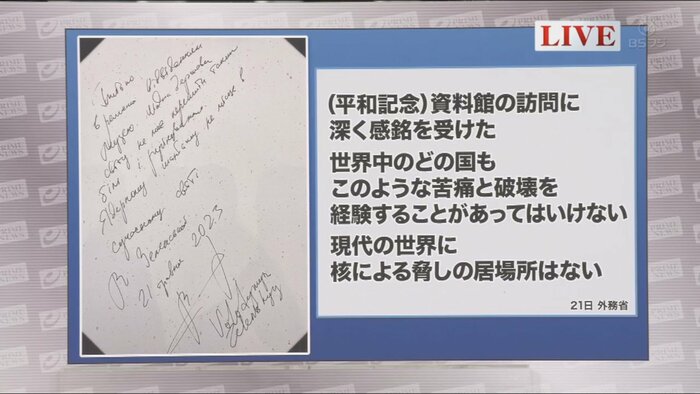 LIVE
BSフジ
Глибоко вражений
візитом
музею. Жодна держава
світу не має пережити такий
біль і руйнування.
Ядерному шантажу не місце в
сучасному світі
В Зеленський
21 травня 2023
(平和記念)資料館の訪問に
深く感銘を受けた
世界中のどの国も
このような苦痛と破壊を
経験することがあってはいけない
現代の世界に
核による脅しの居場所はない
21日 外務省